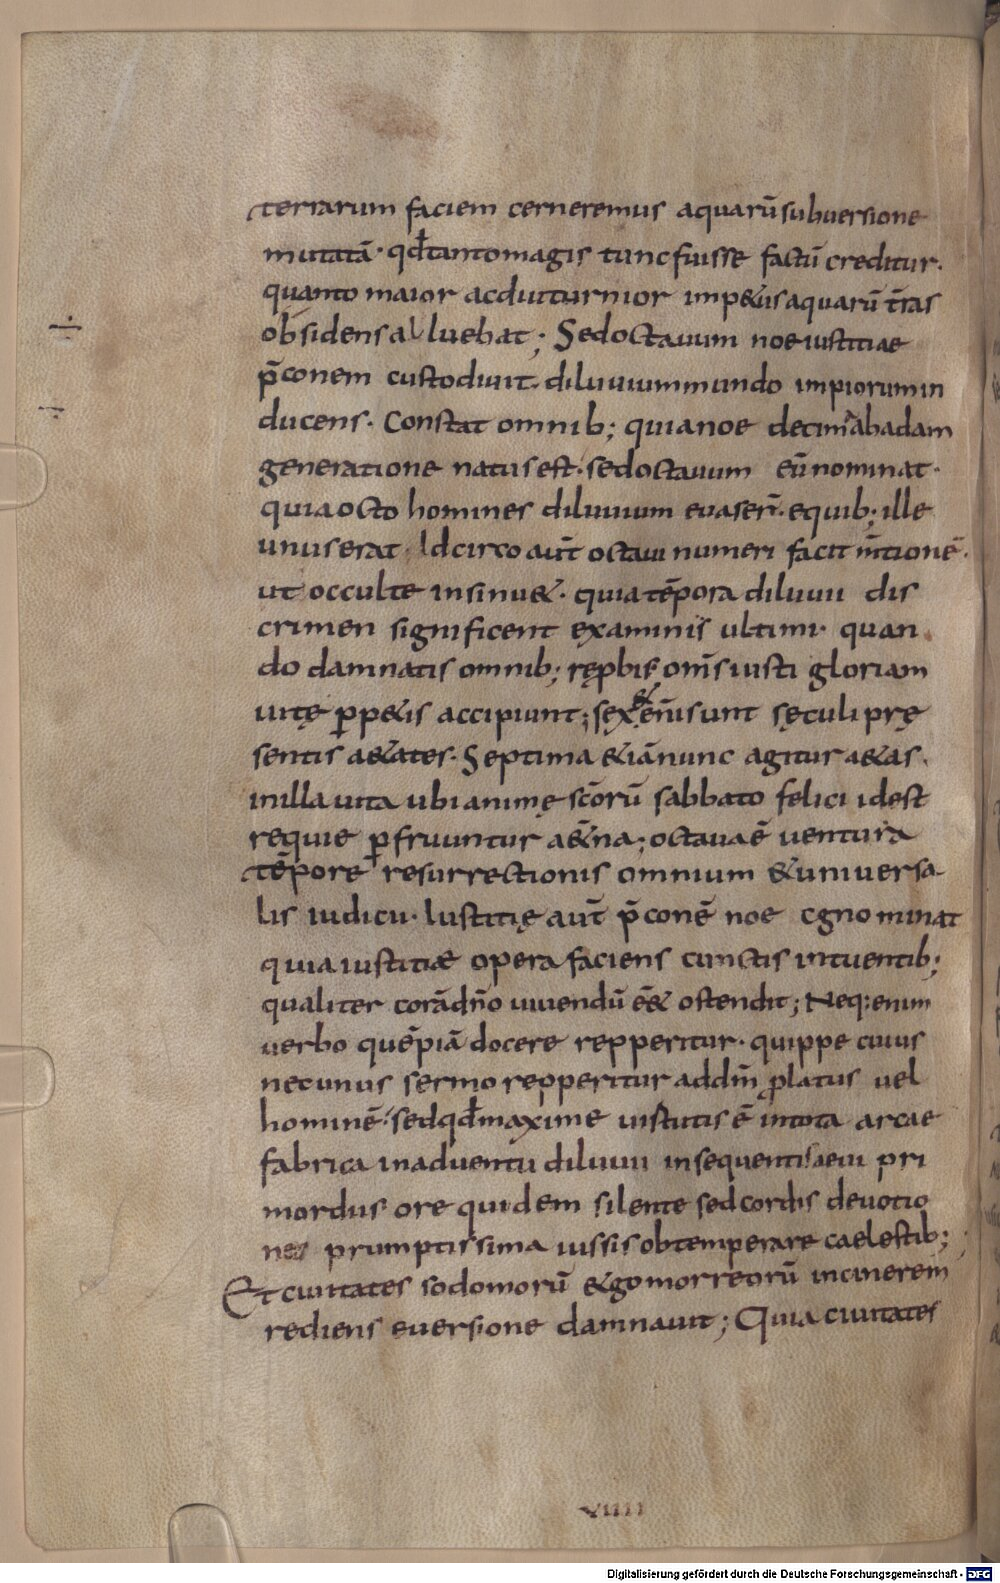 terrarum faciem cerneremus aquarū subversione
mutatā· qđ tanto magis tunc fuisse factū creditur·
quanto maior ac diuturnior imp&us aquarū t̄ras
obsidens alluebat; Sed octauum noe iustitiae
p̄conem custodiuit· diluuium mundo impiorum in
ducens· Constat omnib; quia noe decima ab adam
generatione natus est· sed octauum eū nominat·
quia octo homines diluuium evaser̄· e quib; ille
unus erat· Idcirco aūt octaui numeri facit m̄tionē·
ut occulte insinu&· quia tēpora diluuii dis
crimen significent examinis ultimi· quan
do damnatis omnib; ręprobis om̄s iusti gloriam
uitę ꝑp&uę accipiunt; sex &enī sunt sęculi prę
sentis a&ates· Septima &iā nunc agitur a&as·
in illa uita ubi animę sc̄orū sabbato felici id est
requie ꝑfruuntur a&̄na; octaua ē uentura
tēpore resurrectionis omnium & uniuersa
lis iudicii· Iustitię aūt p̄conē noe cognominat
quia iustitiæ opera faciens cunctis intuentib;
qualiter corā dn̄o uiuendū ē&̄ ostendit; Neq: enim
uerbo quēpiā docere repperitur· quippe cuius
nec unus sermo repperitur ad dm̄ ꝓlatus uel
hominē· sed qđ maxime iustitiis ē in tota arcae
fabrica in aduentu diluuii in sequentis aeui pri
mordiis ore quidem silente sed cordis deuotio
nes prumptissima iussis obtemperare caelestib;
Et ciuitates sodomorū & gomorreorū in cinerem
rediens euersione damnauit; Quia ciuitates
VIIII
Digitalisierung gefördert durch die Deutsche Forschungsgemeinschaft - DFG